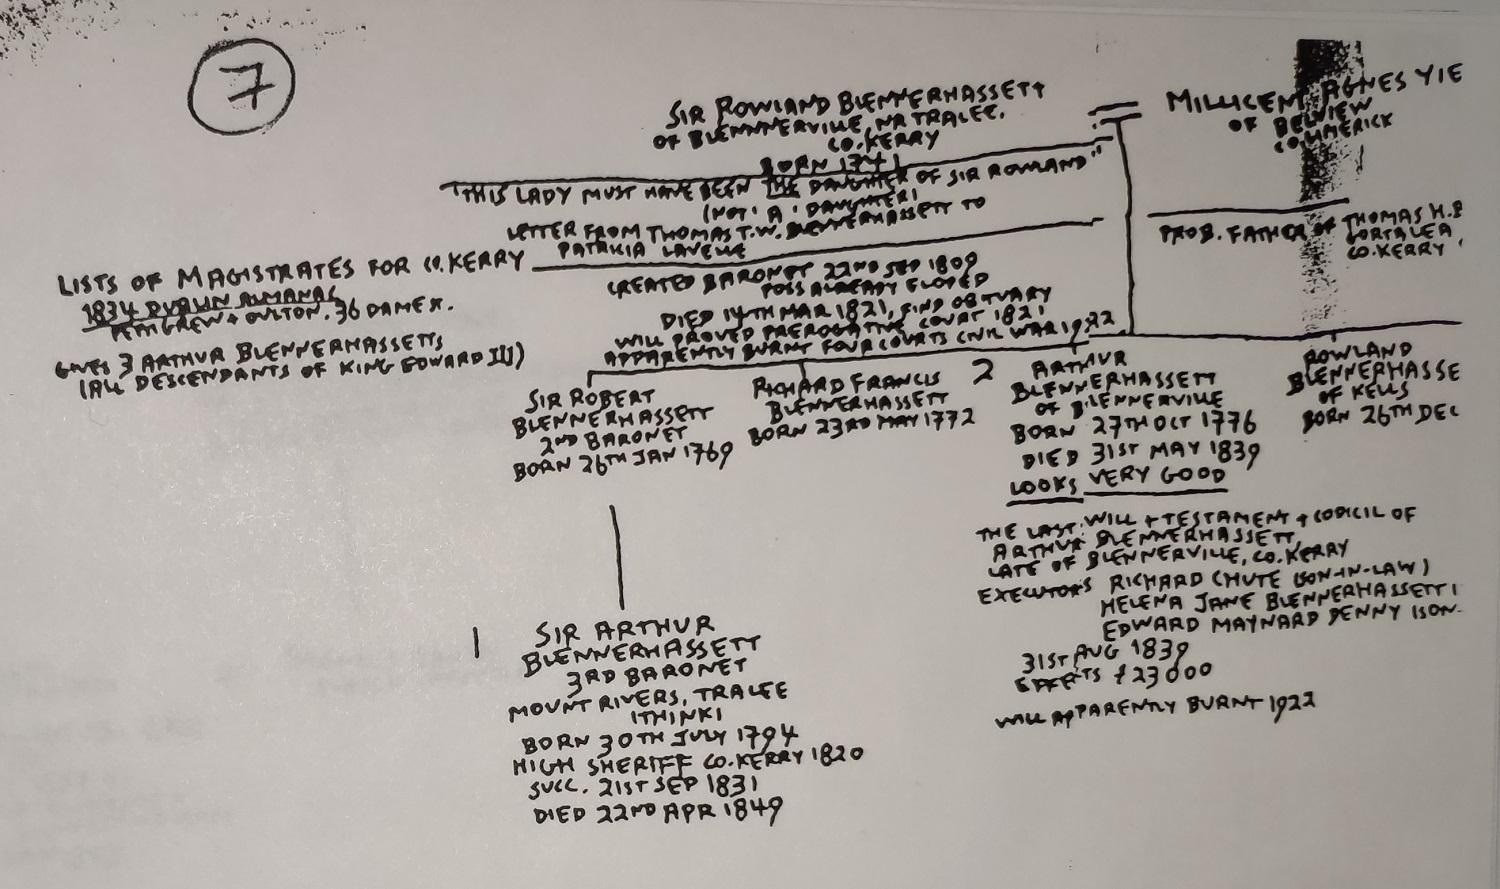 7
SIR ROWLAND BLENNERHASSETT
OF BLENNNERVILLE, NR TRALEE,
CO. KERRY
BORN 1741
MILLICENT AGNES YIE
OF BELVIEW
CO. LIMERICK
"THIS LADY MUST HAVE BEEN THE DAUGHTER OF SIR ROWLAND"
(NOT 'A' DAUGHTER)
LETTER FROM THOMAS T.W. BLENNERHASSETT TO
PATRICIA LAVELLE
PROB. FATHER OF THOMAS H.B
GORTALEA
CO. KERRY
LISTS OF MAGISTRATES FOR CO. KERRY
1834 DUBLIN ALMANAC
PETTIGREW + OULTON. 36 DAME X.
GIVES 3 ARTHUR BLENNERHASSETTS
(ALL DESCENDANTS OF KING EDWARD III)
CREATED BARONET 22ND SEP 1809
POSS ALREADY ELOPED
DIED 14TH MAR 1821, FIND OBTUARY
WILL PROVED PREROGATIVE COURT 1821
APPARENTLY BURNT FOUR COURTS CIVIL WAR 1922
SIR ROBERT
BLENNERHASSETT
2ND BARONET
BORN 26TH JAN 1769
RICHARD FRANCIS
BLENNERHASSETT
BORN 23RD MAY 1772
2 ARTHUR
BLENNERHASSETT
OF BLENNERVILLE
BORN 27TH OCT 1776
DIED 31ST MAY 1839
LOOKS VERY GOOD
ROWLAND
BLENNERHASSE
OF KELLS
BORN 26TH DEC
THE LAST WILL + TESTAMENT + CODICIL OF
ARTHUR BLENNERHASSETT,
LATE OF BLENNERVILLE, CO. KERRY
EXECUTORS RICHARD CHUTE (SON-IN-LAW)
HELENA JANE BLENNERHASSETT
EDWARD MAYNARD DENNY (SON-
31ST AUG 1839
EFFECTS £23000
WILL APPARENTLY BURNT 1922
1 SIR ARTHUR
BLENNERHASSETT
3RD BARONET
MOUNT RIVERS, TRALEE
(THINK)
BORN 30TH JULY 1794
HIGH SHERIFF CO. KERRY 1820
SUCC. 21ST SEP 1831
DIED 22ND APR 1849